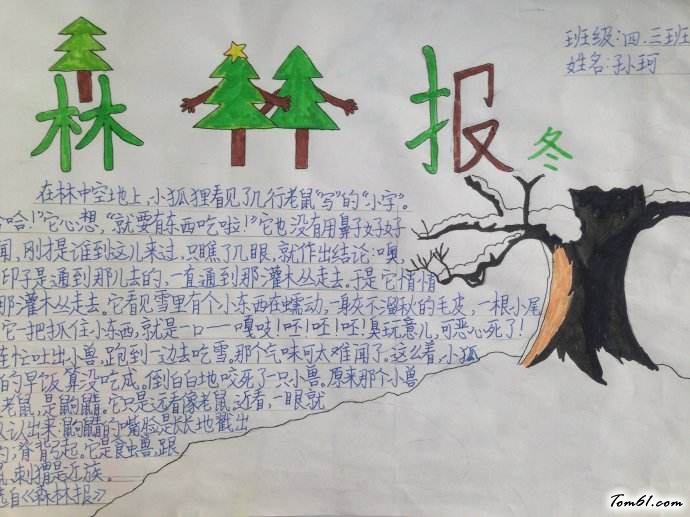 班级:四.三班
姓名:孙珂
森林报
冬
在林中空地上,小狐狸看见了几行老鼠"写"的"小字"。
哈!"它心想,"就要有东西吃啦!"它也没有用鼻子好好
闻,刚才是谁到这儿来过,只瞧了几眼,就作出结论:噢,
印子是通到那儿去的,一直通到那灌木丛走去。于是它悄悄
那灌木丛走去。它看见雪里有个小东西在蠕动,一身灰不溜秋的毛皮,一根小尾
它一把抓住小东西,就是一口——嘎吱!呸!呸!呸!臭玩意儿,可恶心死了!
连忙吐出小兽,跑到一边去吃雪,那个气味可太难闻了。这么着,小狐
的早饭算没吃成。倒白白地咬死了一只小兽。原来那个小兽
老鼠,是鼩鼱。它只是远看像老鼠。近看,一眼就
认出来:鼩鼱的嘴脸是长长地戳出
的,脊背弓起。它是食虫兽,跟
刺猬是近族。
选自《森林报》
Tom61.com